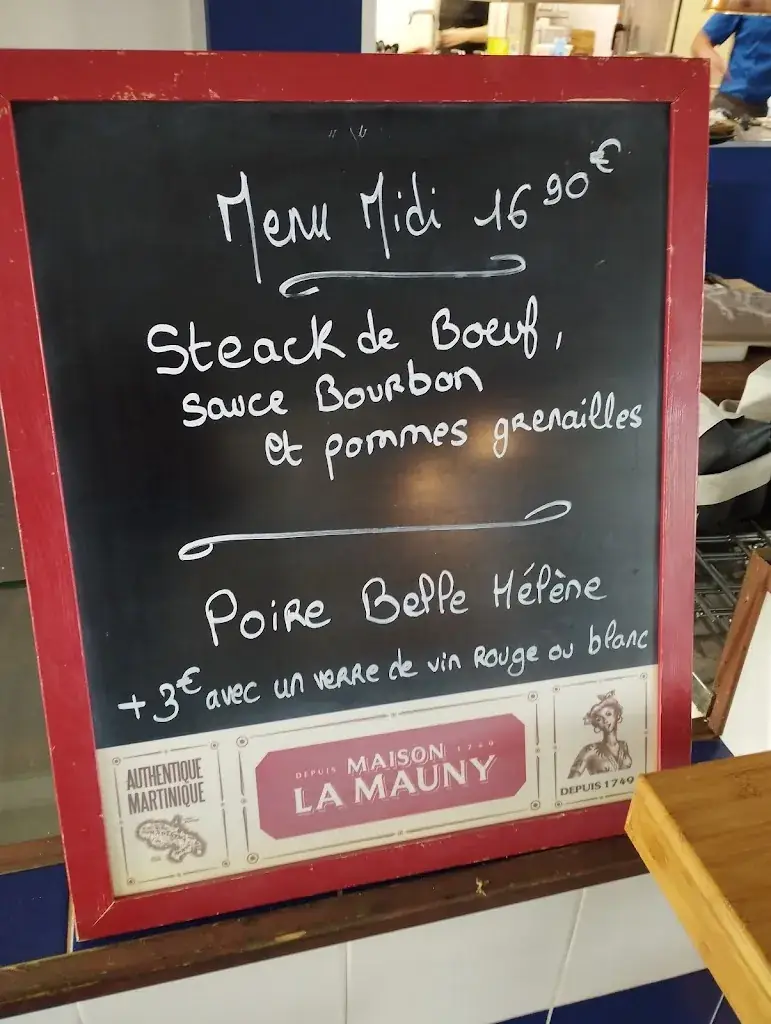 Menu Midi 16 90€
Steack de Boeuf,
sauce Bourbon
et pommes grenailles
Poire Belle Hélène
+3€ avec un verre de vin Rouge ou blanc
AUTHENTIQUE
MARTINIQUE
DEPUIS 1749
MAISON
LA MAUNY
DEPUIS 1749